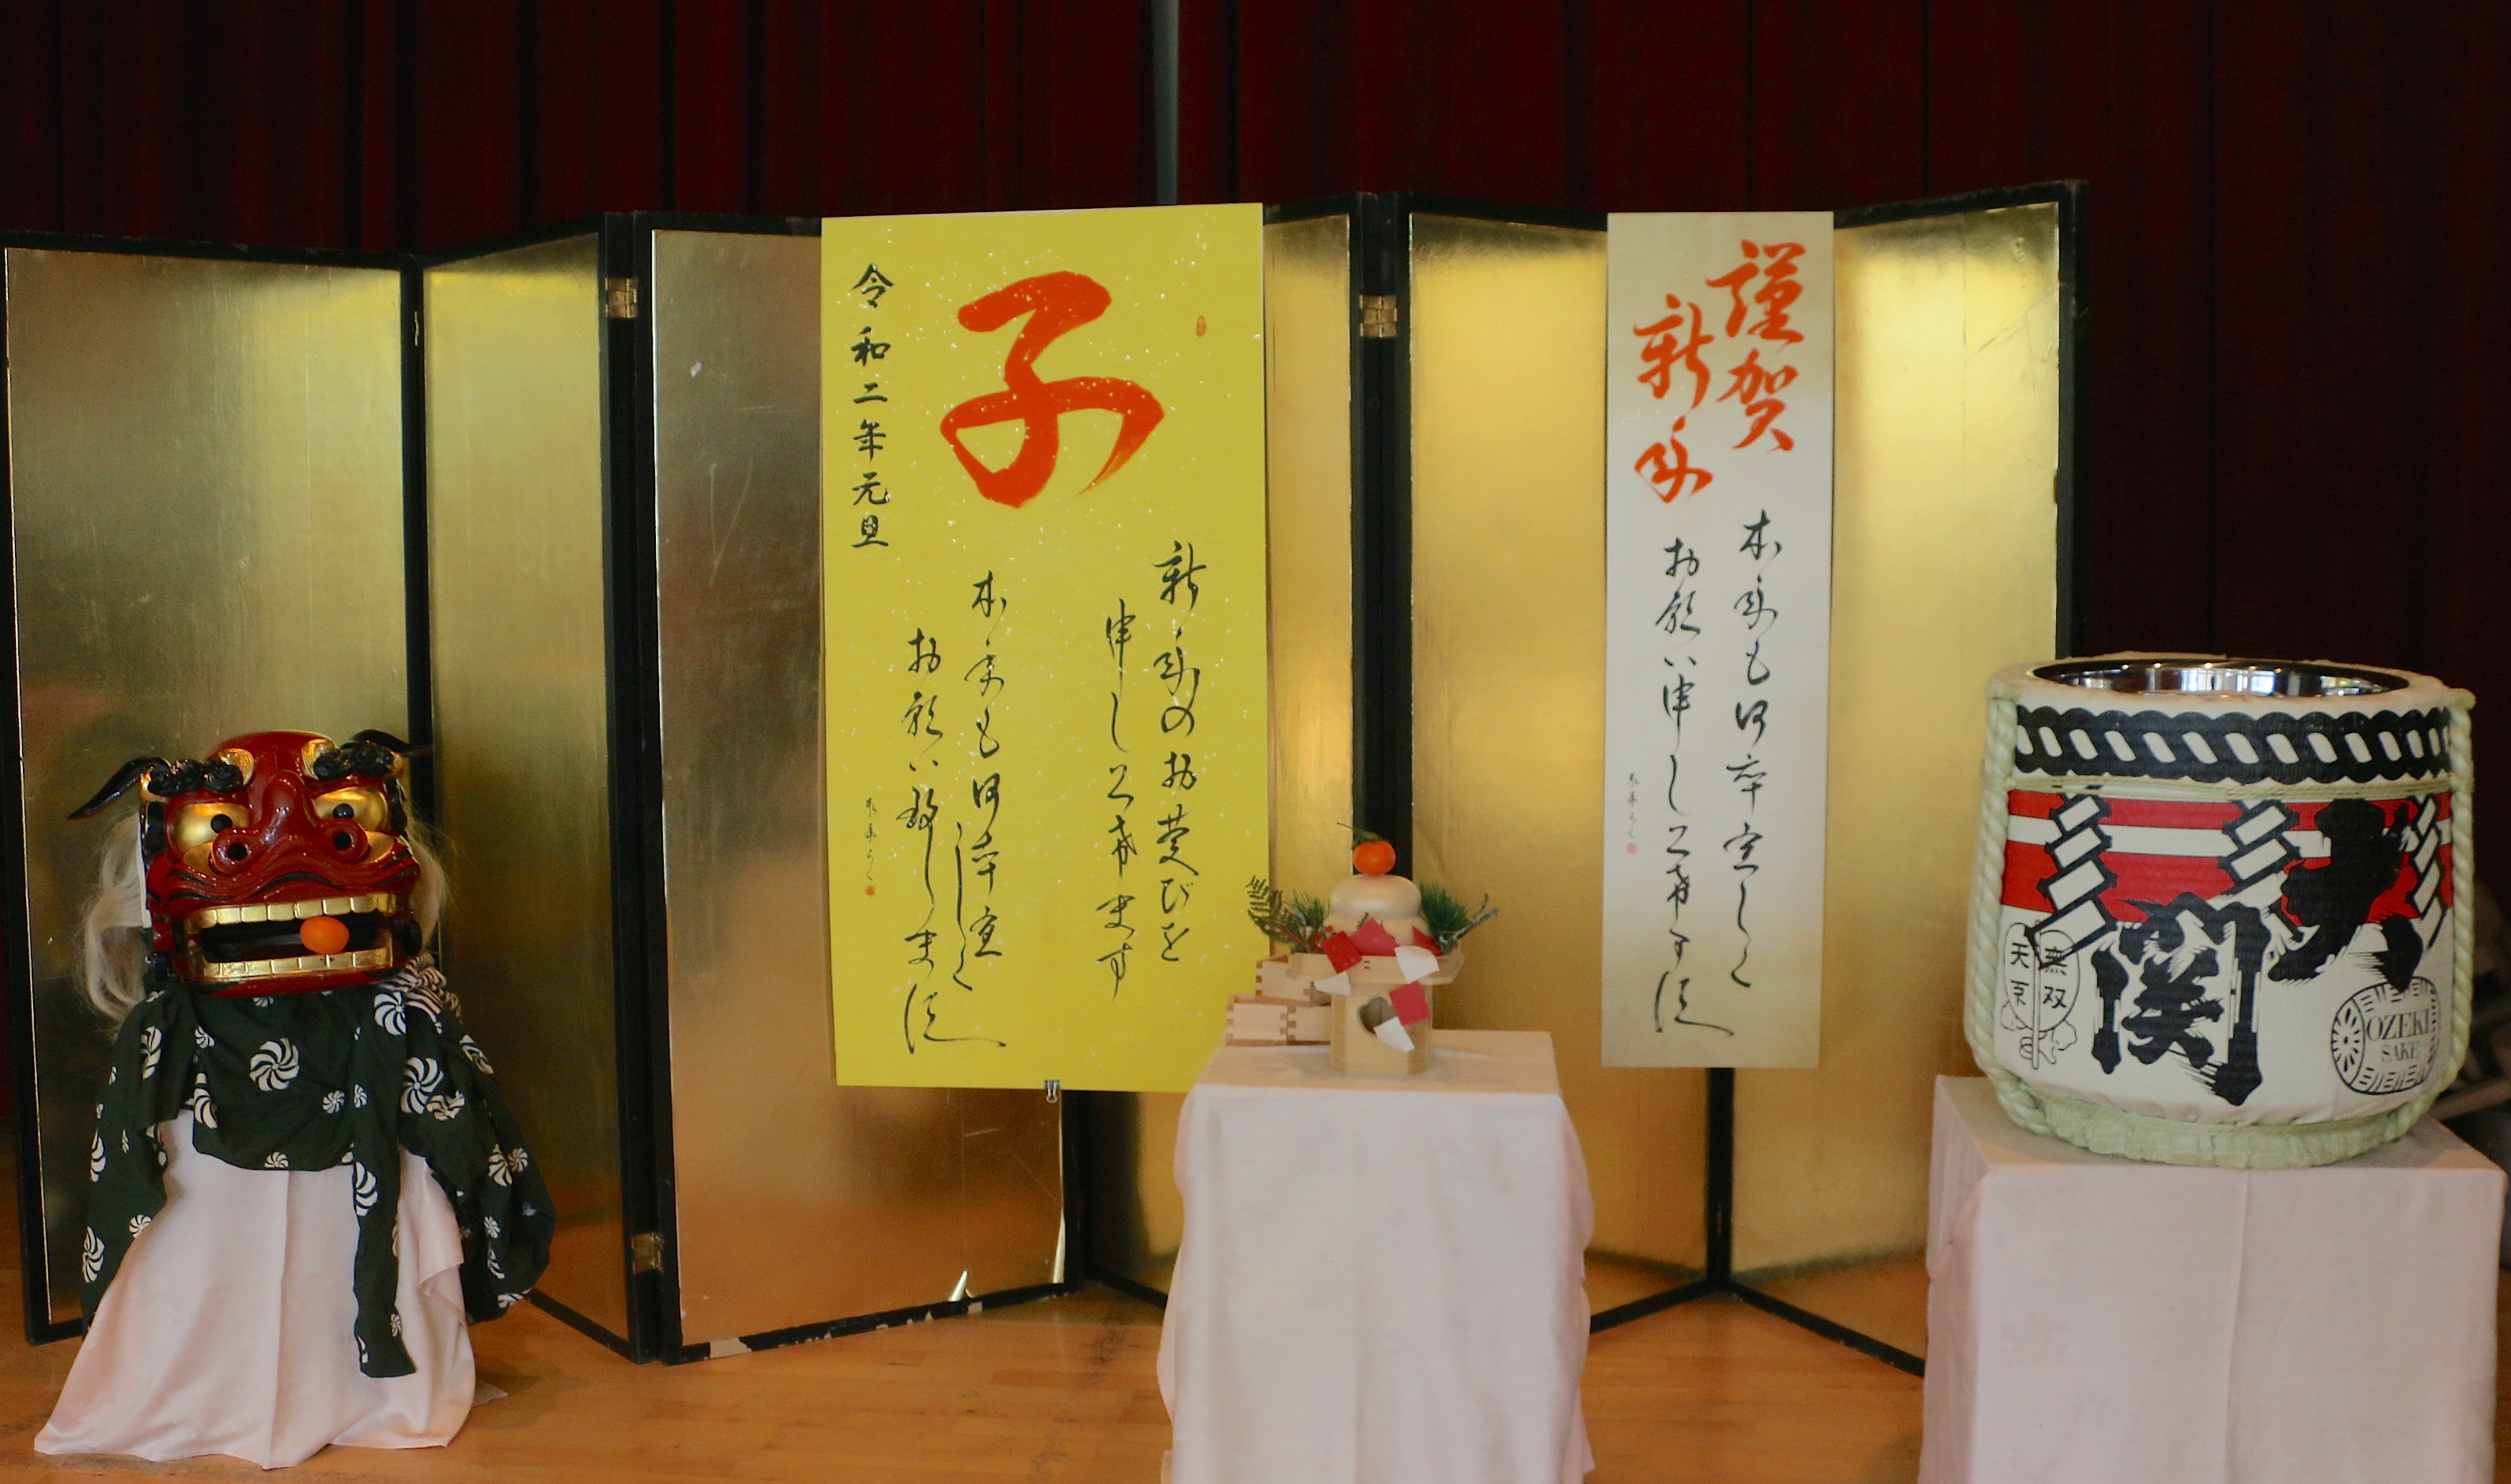 子
新年のお慶びを
申し上げます
本年も何卒宜しく
お願い致します
令和二年元旦
謹賀
新年
本年も何卒宜しく
お願い申し上げます
大関
無双
OZEKI
SAKE